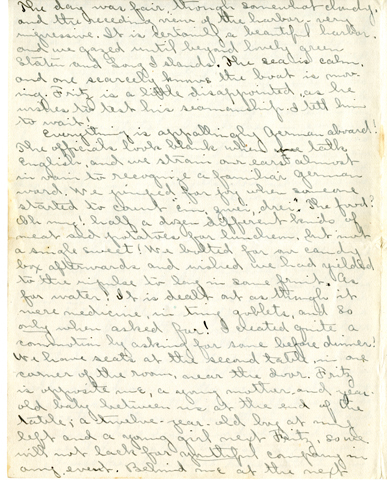 The day was fair, though somewhat cloudy,
and the receding view of the harbor very
impressive. It is certainly a beautiful harbor
and we gazed until beyond lovely green
Staten and Long Islands. The sea is calm,
and one scarcely knows the boat is mov-
ing. Fritz is a little disappointed, as he
wishes to test his seamanship. I tell him
to wait!
Everything is appallingly German aboard!
The officials look blank when we talk
English, and we strain our ears almost
in vain to recognize a familiar German
word. We jumped for joy when someone
started to count "ein, zwei, drei." The food?
Oh my! half a dozen different kinds of
meat and potatoes for luncheon, but not
a single sweet! We bolted for our candy
box afterwards and wished we had yielded
to the impulse to lay in some fruit. As
for water! It is dealt out as though it
were medicine, in tiny goblets, and so
only when asked for! I created quite a
commotion by asking for some before dinner!
We have seats at the second table, in one
corner of the room, near the door. Fritz
is opposite me, a young mother and year-
old baby between us at the end of the
table; a twelve-year-old boy at my
left and a young girl next Fritz, so we
will not lack for youthful company in
any event. Behind me at the next